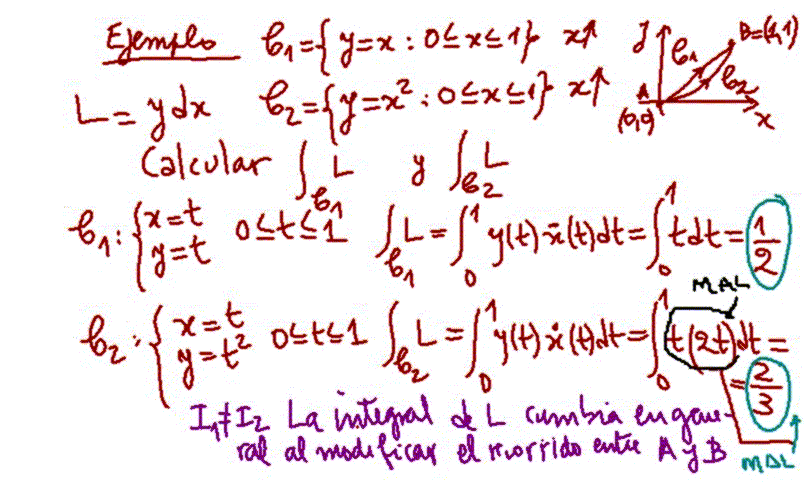 Ejemplo 𝒞₁={y=x : 0≤x≤1} x↑
L = ydx 𝒞₂={y=x² : 0≤x≤1} x↑
y 𝒞₁ B=(1,1) 𝒞₂ A (0,0) x
Calcular ∫_𝒞₁ L y ∫_𝒞₂ L
𝒞₁: {x=t y=t 0≤t≤1 ∫_𝒞₁ L = ∫₀¹ y(t) ẋ(t)dt = ∫₀¹ t dt = 1/2
MAL
𝒞₂: {x=t y=t² 0≤t≤1 ∫_𝒞₂ L = ∫₀¹ y(t) ẋ(t)dt = ∫₀¹ t(2t)dt =
= 2/3
I₁≠I₂ La integral de L cambia en gene-
ral al modificar el recorrido entre A y B
MAL